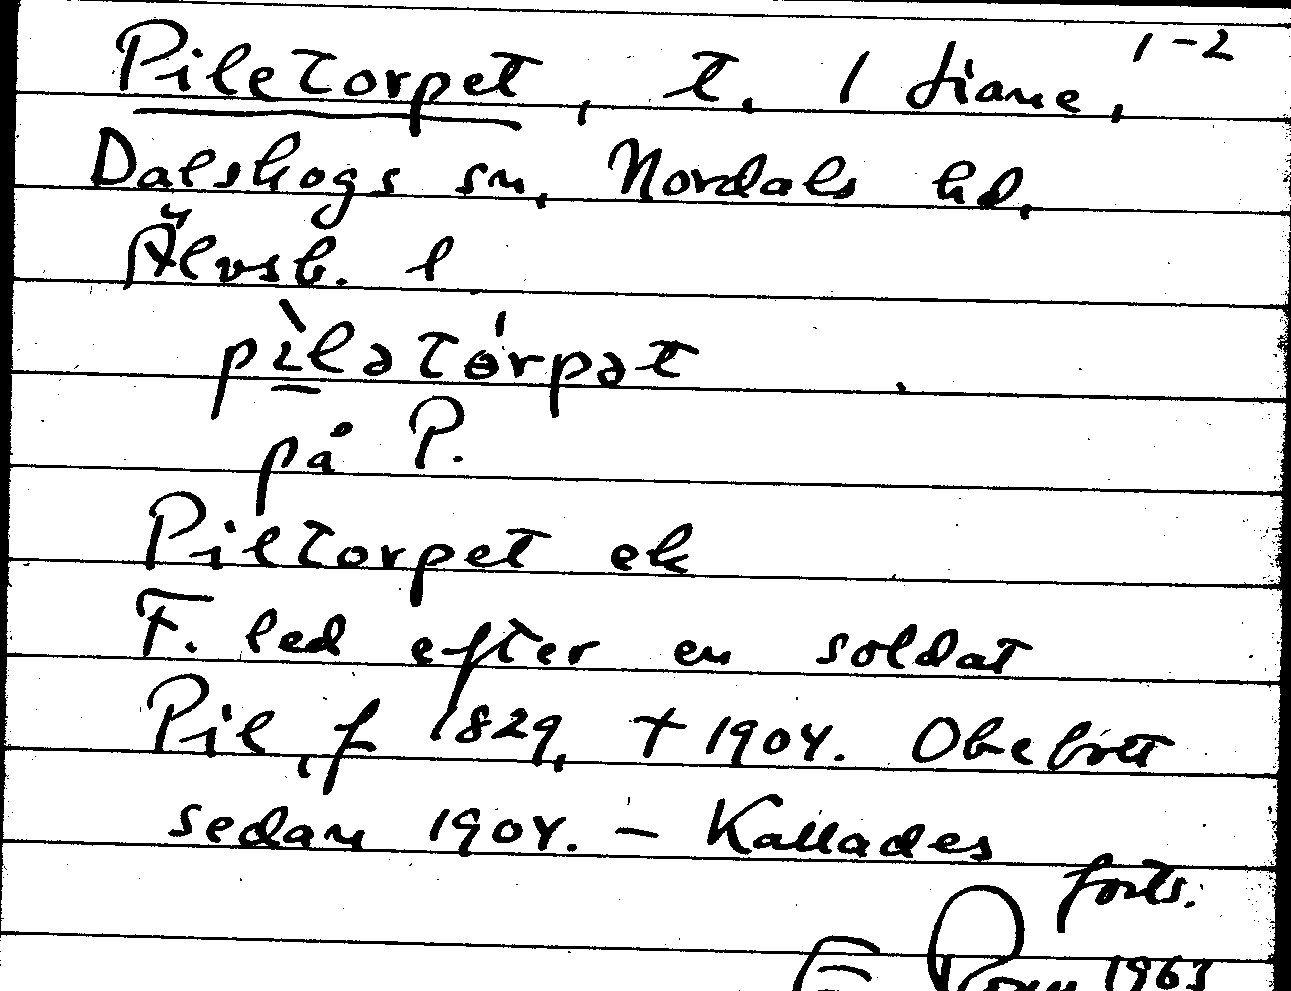 1-2
Piletorpet, t. / Liane,
Dalskogs sn, Nordals hd,
Älvsb. l
pìlətórpət
på P.
Piltorpet ek
F. led efter en soldat
Pil, f 1829, † 1904. Obebott
sedan 1904. – Kallades
forts.
1963